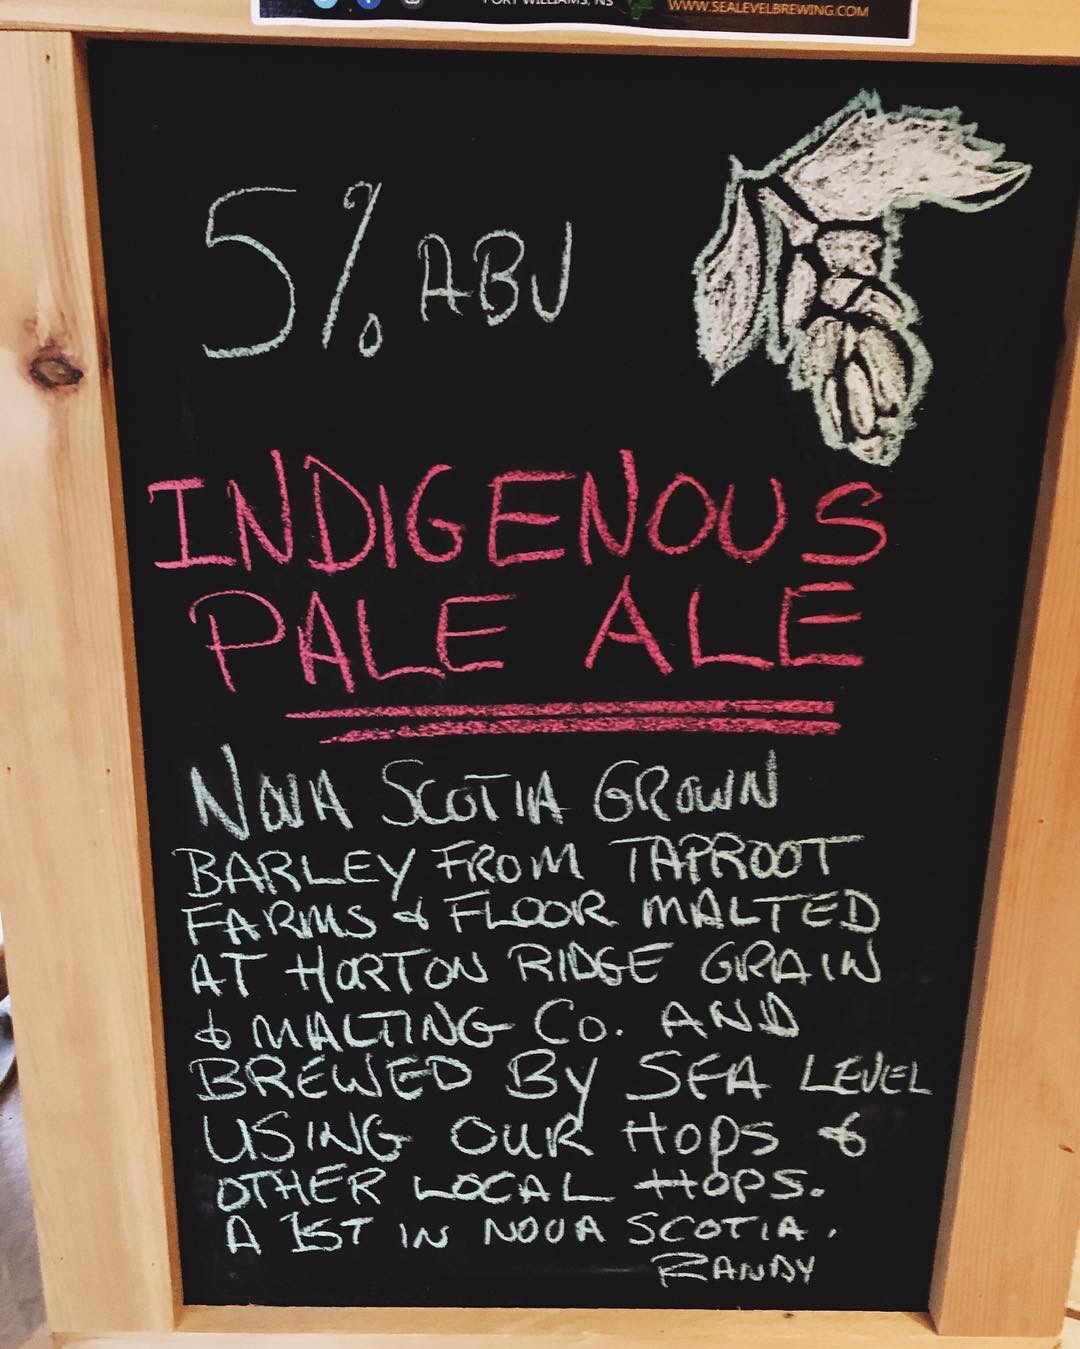 PORT WILLIAMS, NS
WWW.SEALEVELBREWING.COM
5% ABV
INDIGENOUS
PALE ALE
NOVA SCOTIA GROWN
BARLEY FROM TAPROOT
FARMS & FLOOR MALTED
AT HORTON RIDGE GRAIN
& MALTING CO. AND
BREWED BY SEA LEVEL
USING OUR HOPS &
OTHER LOCAL HOPS.
A 1ST IN NOVA SCOTIA.
RANDY